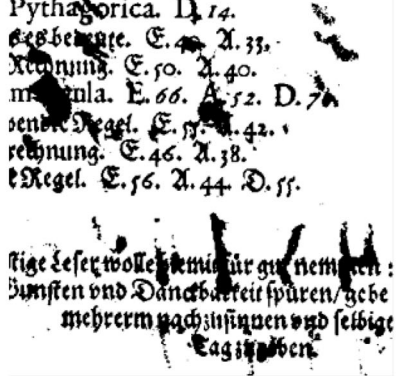 Pythagorica. D. 14.
es bedeute. E. 40. A. 33.
Rechnung. E. 50. A. 40.
E. 66. A. 52. D. 7
Regel. E. 55. A. 42.
rechnung. E. 46. A. 38.
Regel. E. 56. A. 44. D. 55.
Leser wolle hiemit für gut nemmen :
Gunsten vnd Danckbarkeit spüren/ gebe
mehrerm nachzusinnen vnd selbige
Tag zu geben.